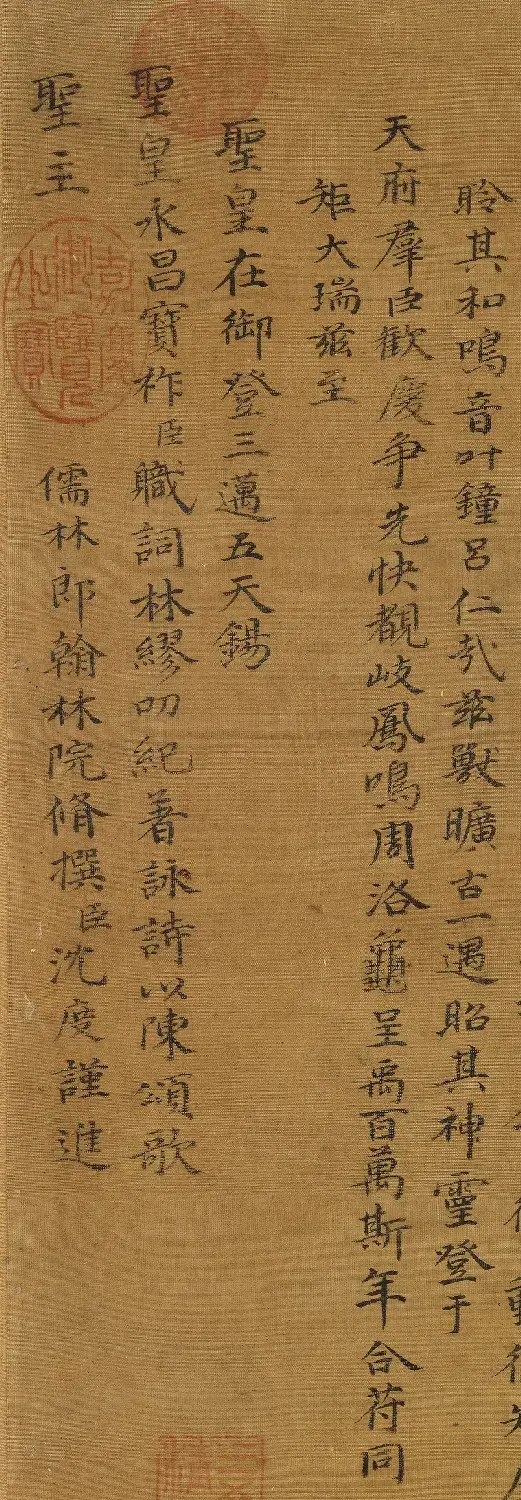 聆其和鳴音叶鐘呂仁哉茲獸曠古一遇昭其神靈登于
天府群臣歡慶爭先快覩岐鳳鳴周洛龜呈禹百萬斯年合符同
矩大瑞茲至
聖皇在御登三邁五天錫
聖皇永昌寶祚臣職詞林繆叨紀著詠詩以陳頌歌
聖主
嘉慶御覽之寶
儒林郎翰林院脩撰臣沈度謹進